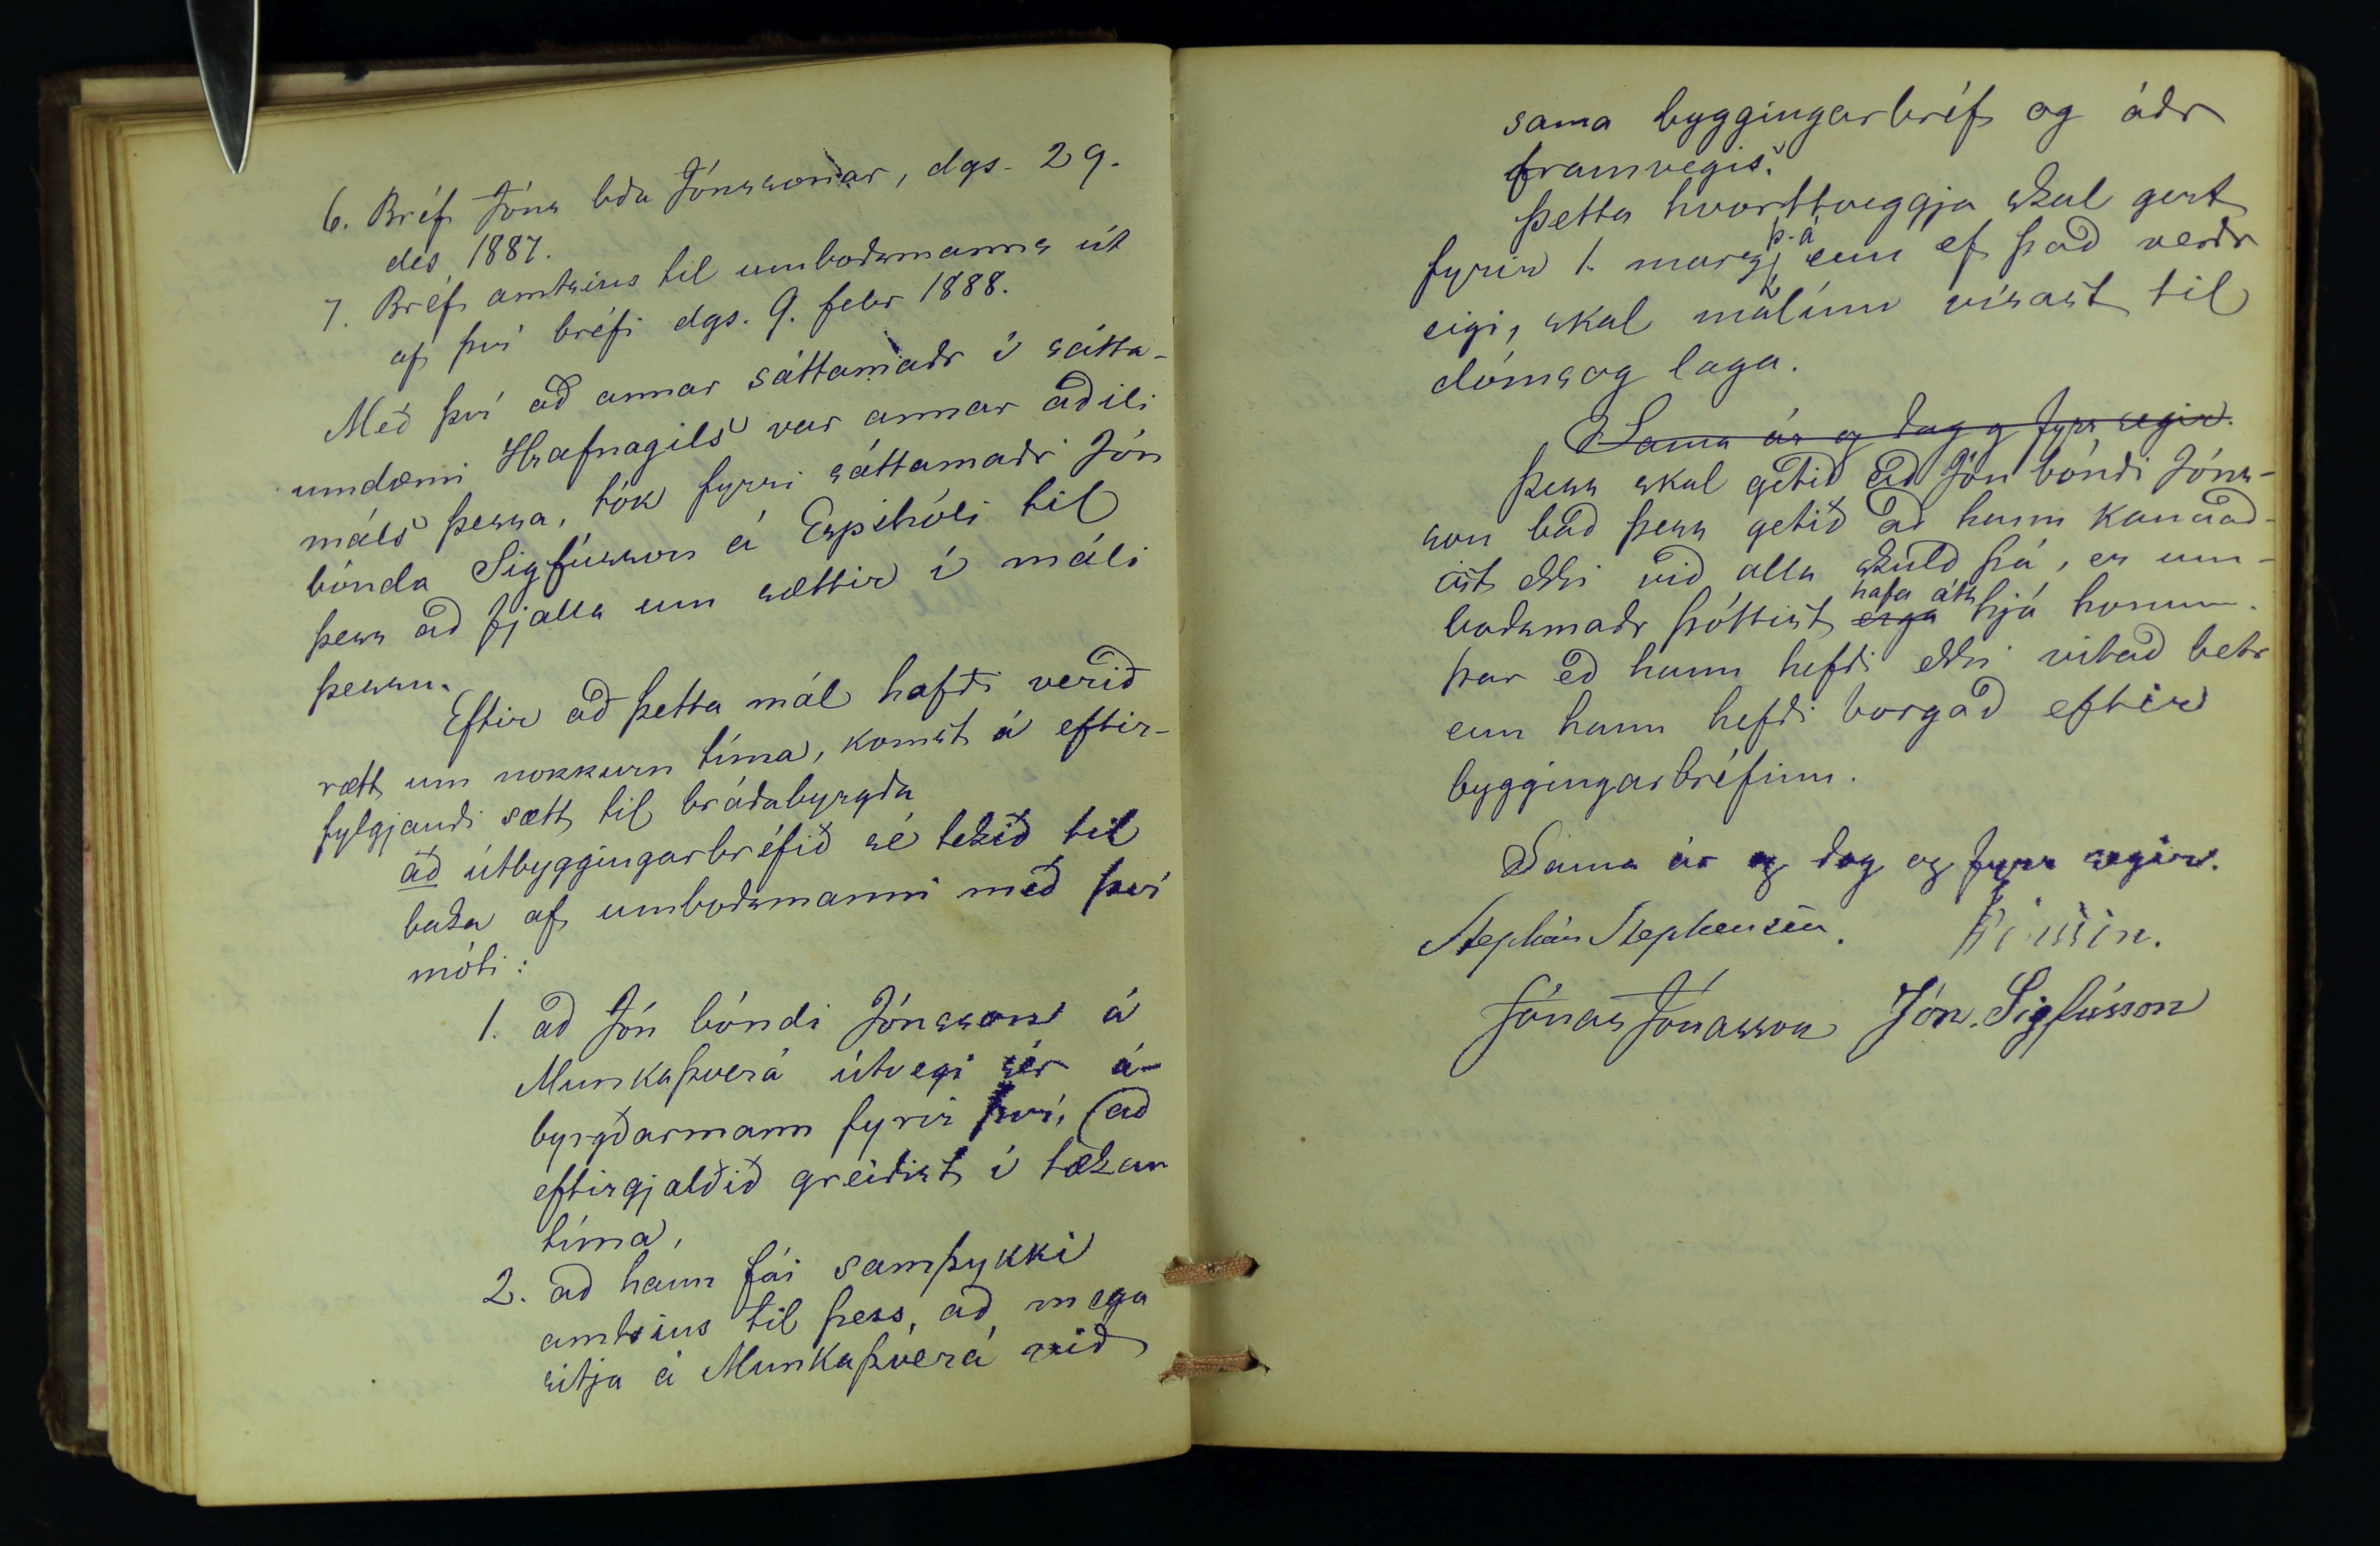 6. Bréf Jóns bda Jónssonar, dgs. 29.
des. 1887.
7. Bréf amtsins til umboðsmanns út
af því bréfi dgs. 9. febr 1888.
Með því að annar sáttamaðr í sátta-
umdæmi Hrafnagils var annar aðili
máls þessa, tók fyrri sáttamaðr Jón
bónda Sigfússon á Espihóli til
þess að fjalla um sættir í máli
þessu.
Eftir að þetta mál hafði verið
rætt um nokkurn tíma, komst á eftir-
fylgjandi sætt til bráðabyrgða
að útbyggingarbréfið sé tekið til
baka af umboðsmanni með því
móti:
1. að Jón bóndi Jónsson á
Munkaþverá útvegi sér á-
byrgðarmann fyrir því, að
eftirgjaldið greiðist í tækan
tíma,
2. að hann fái samþykki
amtsins til þess, að mega
sitja á Munkaþverá við
sama byggingarbréf og áðr
framvegis.
Þetta hvorttveggja skal gert
fyrir 1. marz þ. á. enn ef það verðr
eigi, skal málinu vísast til
dóms og laga.
Sama ár og dag og fyrr segir.
Þess skal getið að Jón bóndi Jóns-
son bað þess getið að hann kannað-
ist ekki við alla skuld þá, er um-
boðsmaðr þóttist eiga hafa átt hjá honum.
þar eð hann hefði ekki vitað betr
enn hann hefði borgað eftir
byggingarbréfinu.
Sama ár og dag og fyrr segir.
Stephán Stephensen.
Jónas Jónasson Jón. Sigfússon